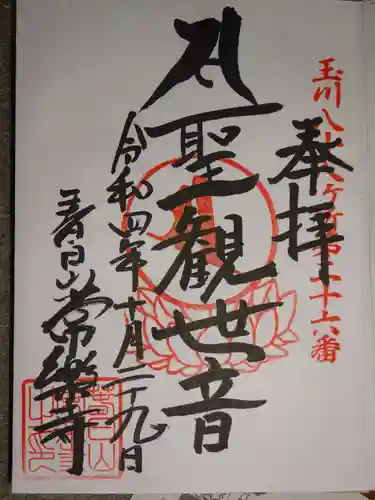 奉拝
玉川八十八ヶ所第十六番
聖観世音
令和四年十月二十九日
春日山 常樂寺